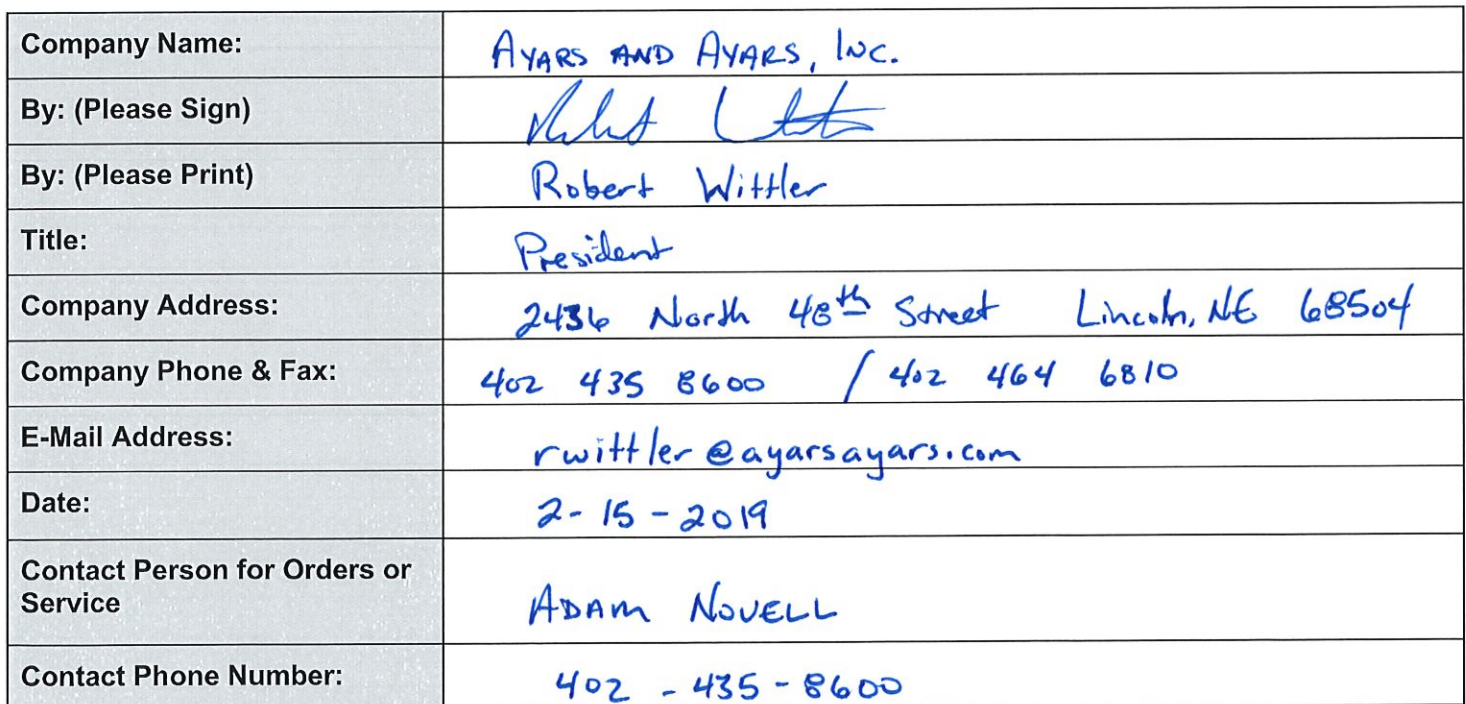 Company Name: AYARS AND AYARS, INC.
By: (Please Sign)
By: (Please Print) Robert Wittler
Title: President
Company Address: 2436 North 48th Street Lincoln, NE 68504
Company Phone & Fax: 402 435 8600 / 402 464 6810
E-Mail Address: rwittler@ayarsayars.com
Date: 2-15-2019
Contact Person for Orders or
Service ADAM NOVELL
Contact Phone Number: 402-435-8600